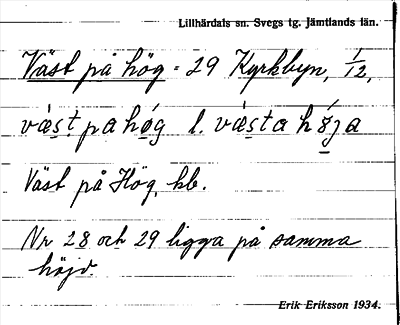 Lillhärdals sn. Svegs tg. Jämtlands län.
Väst på hög = 29 Kyrkbyn, 1/12,
väst pa høg l. västa høja
Väst på Hög, hb.
Nr 28 och 29 ligga på samma
höjd.
Erik Eriksson 1934.